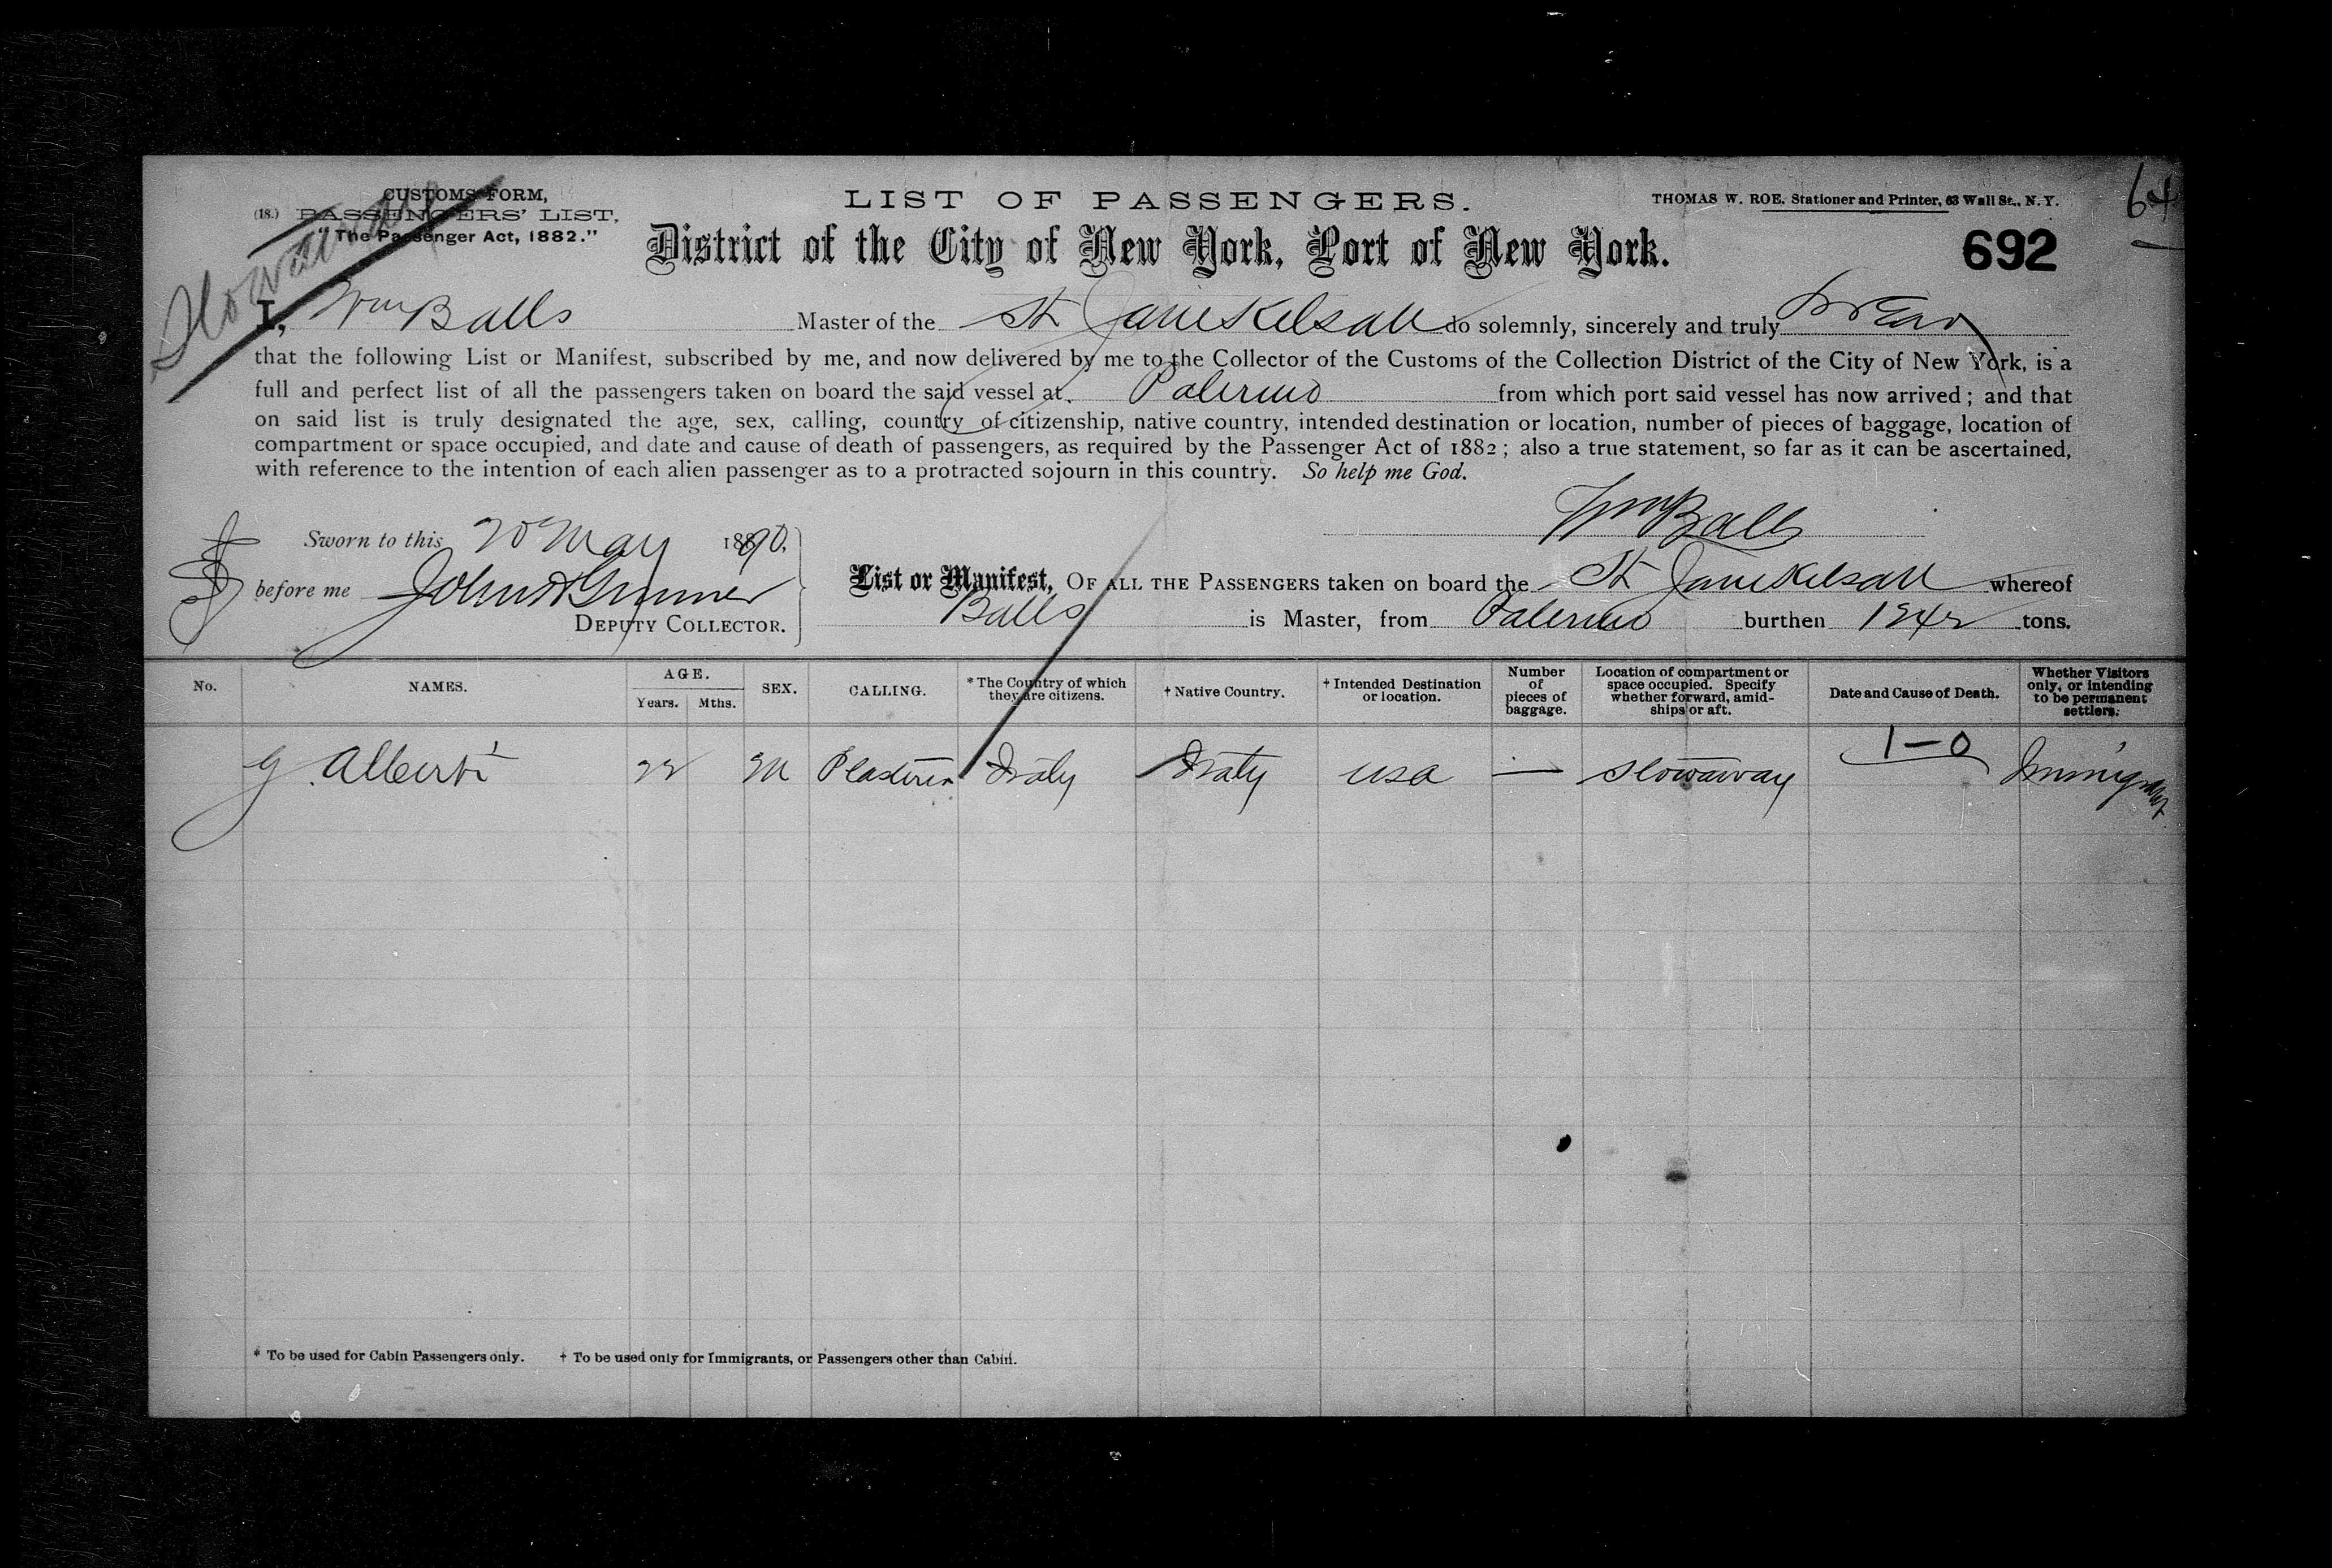 CUSTOMS FORM,
(18.) PASSENGERS' LIST,
"The Passenger Act, 1882."
Stowaway
LIST OF PASSENGERS.
THOMAS W. ROE, Stationer and Printer, 63 Wall St., N. Y.
64
District of the City of New York, Port of New York.
692
I, Wm Balls Master of the St Jane Kelsall do solemnly, sincerely and truly swear
that the following List or Manifest, subscribed by me, and now delivered by me to the Collector of the Customs of the Collection District of the City of New York, is a
full and perfect list of all the passengers taken on board the said vessel at Palermo from which port said vessel has now arrived; and that
on said list is truly designated the age, sex, calling, country of citizenship, native country, intended destination or location, number of pieces of baggage, location of
compartment or space occupied, and date and cause of death of passengers, as required by the Passenger Act of 1882; also a true statement, so far as it can be ascertained,
with reference to the intention of each alien passenger as to a protracted sojourn in this country. So help me God.
Wm Balls
Sworn to this 20 May 1890,
before me John
DEPUTY COLLECTOR.
List or Manifest, OF ALL THE PASSENGERS taken on board the St Jane Kelsall whereof
Balls is Master, from Palermo burthen tons.
No. NAMES. AGE. Years. Mths. SEX. CALLING. * The Country of which they are citizens. † Native Country. † Intended Destination or location. Number of pieces of baggage. Location of compartment or space occupied. Specify whether forward, amidships or aft. Date and Cause of Death. Whether Visitors only, or intending to be permanent settlers.
1—0
G. Alberti 22 M Plasterer Italy Italy USA — Stowaway Immigrant
* To be used for Cabin Passengers only. † To be used only for Immigrants, or Passengers other than Cabin.